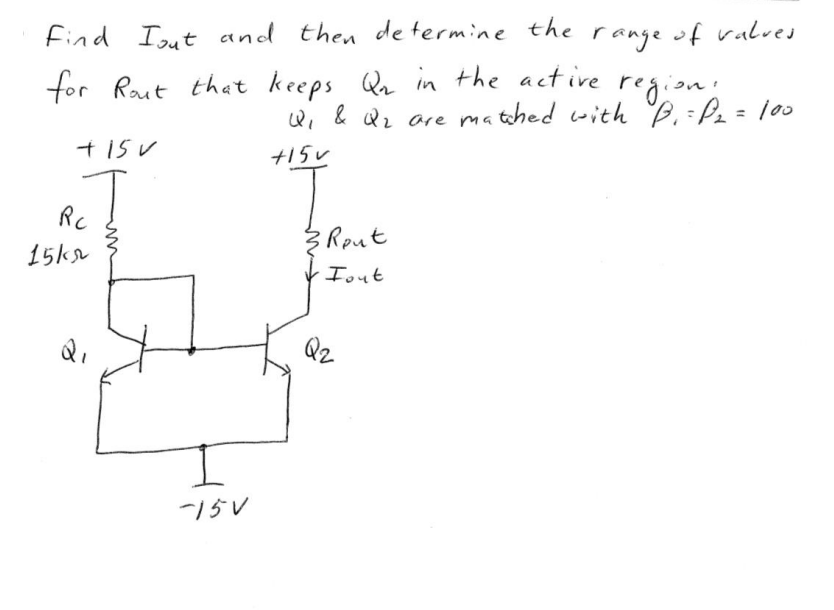 Find Iout and then determine the range of values
for Rout that keeps Q2 in the active region.
Q1 & Q2 are matched with β1 = β2 = 100
+15V
+15V
RC
15kΩ
Rout
Iout
Q1
Q2
-15V